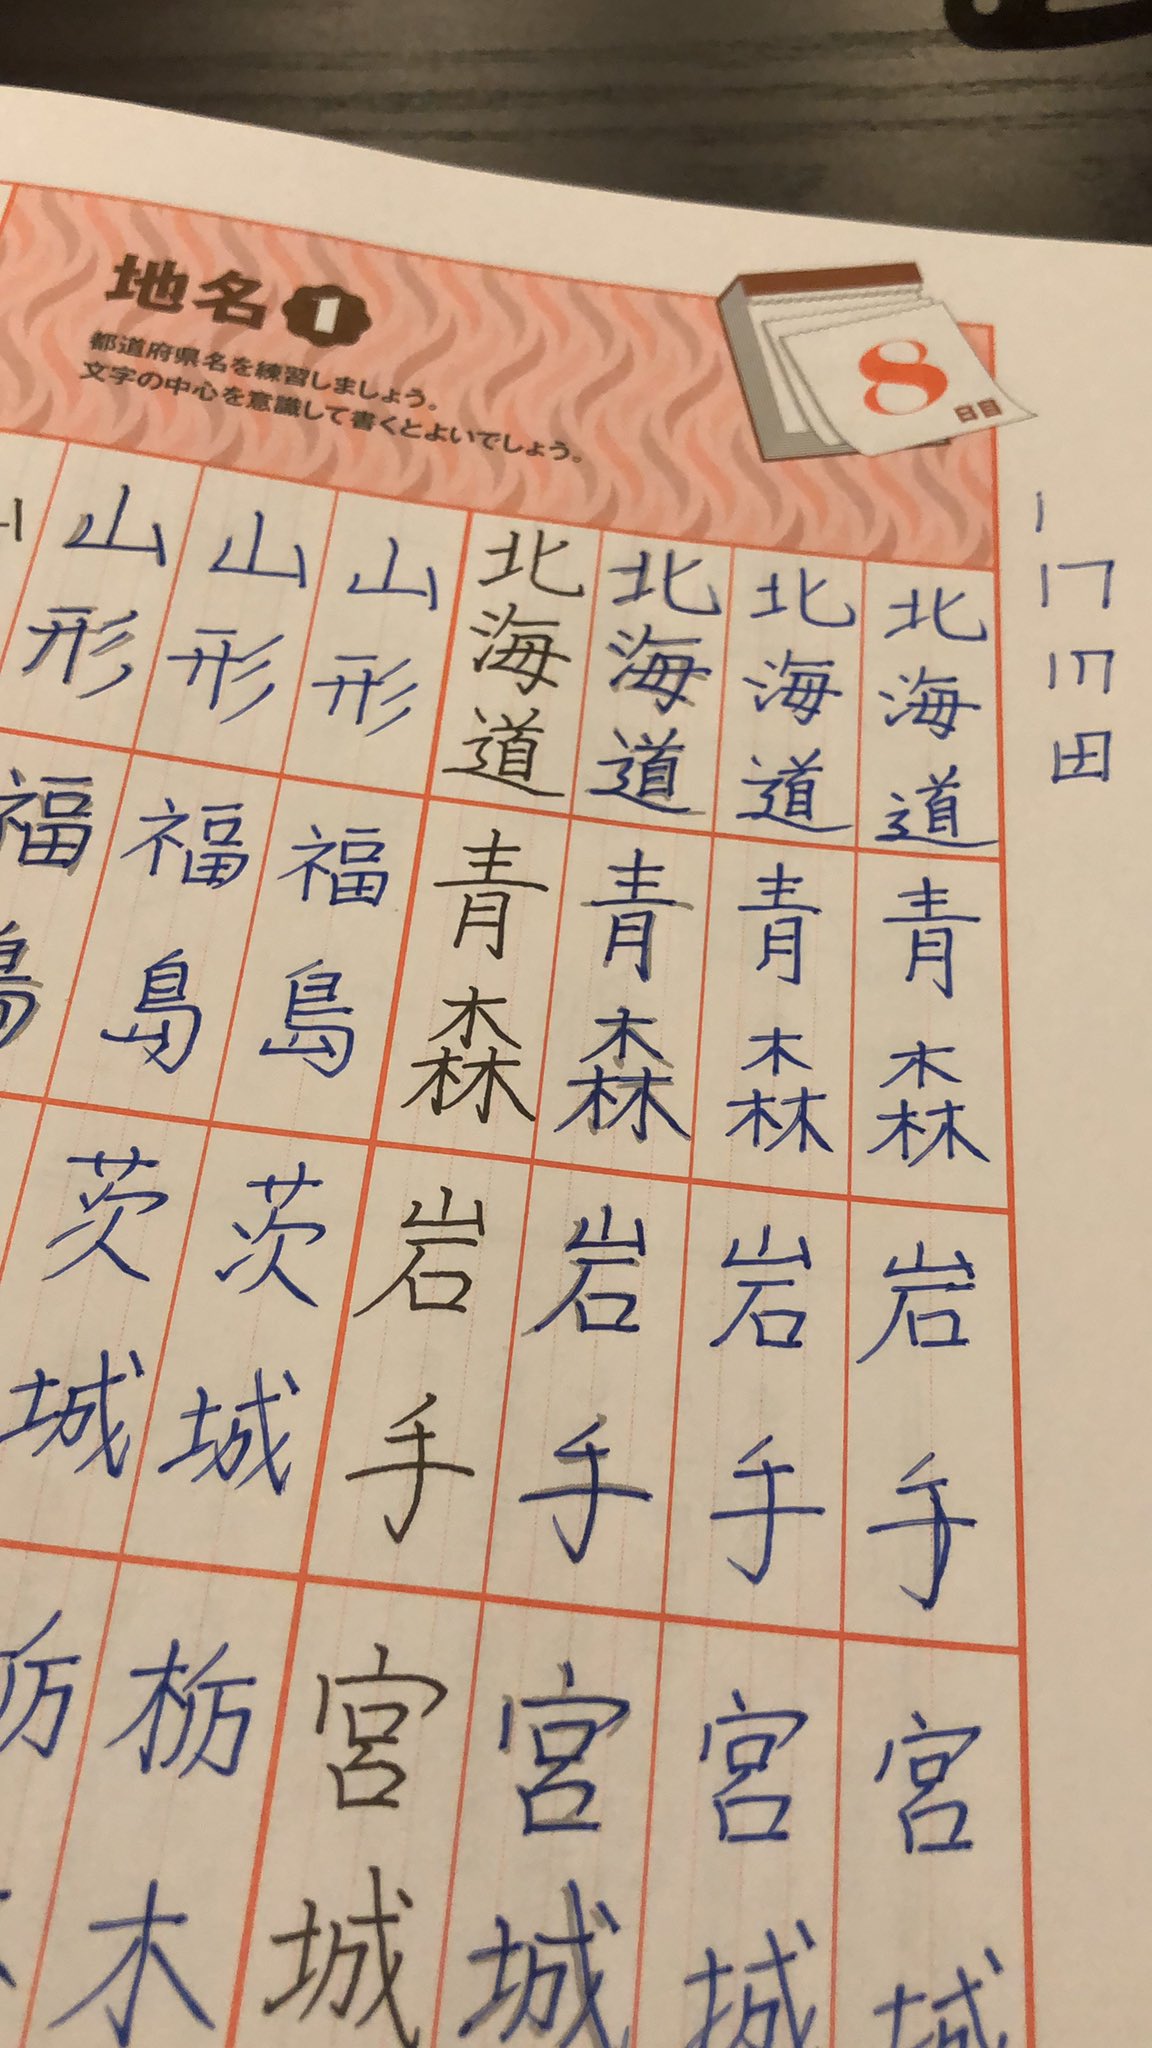 地名 1
都道府県名を練習しましょう。
文字の中心を意識して書くとよいでしょう。
8日目
田
北海道 青森 岩手 宮城
北海道 青森 岩手 宮城
北海道 青森 岩手 宮城
北海道 青森 岩手 宮城
山形 福島 茨城 栃木
山形 福島 茨城 栃木
山形 福島 茨城